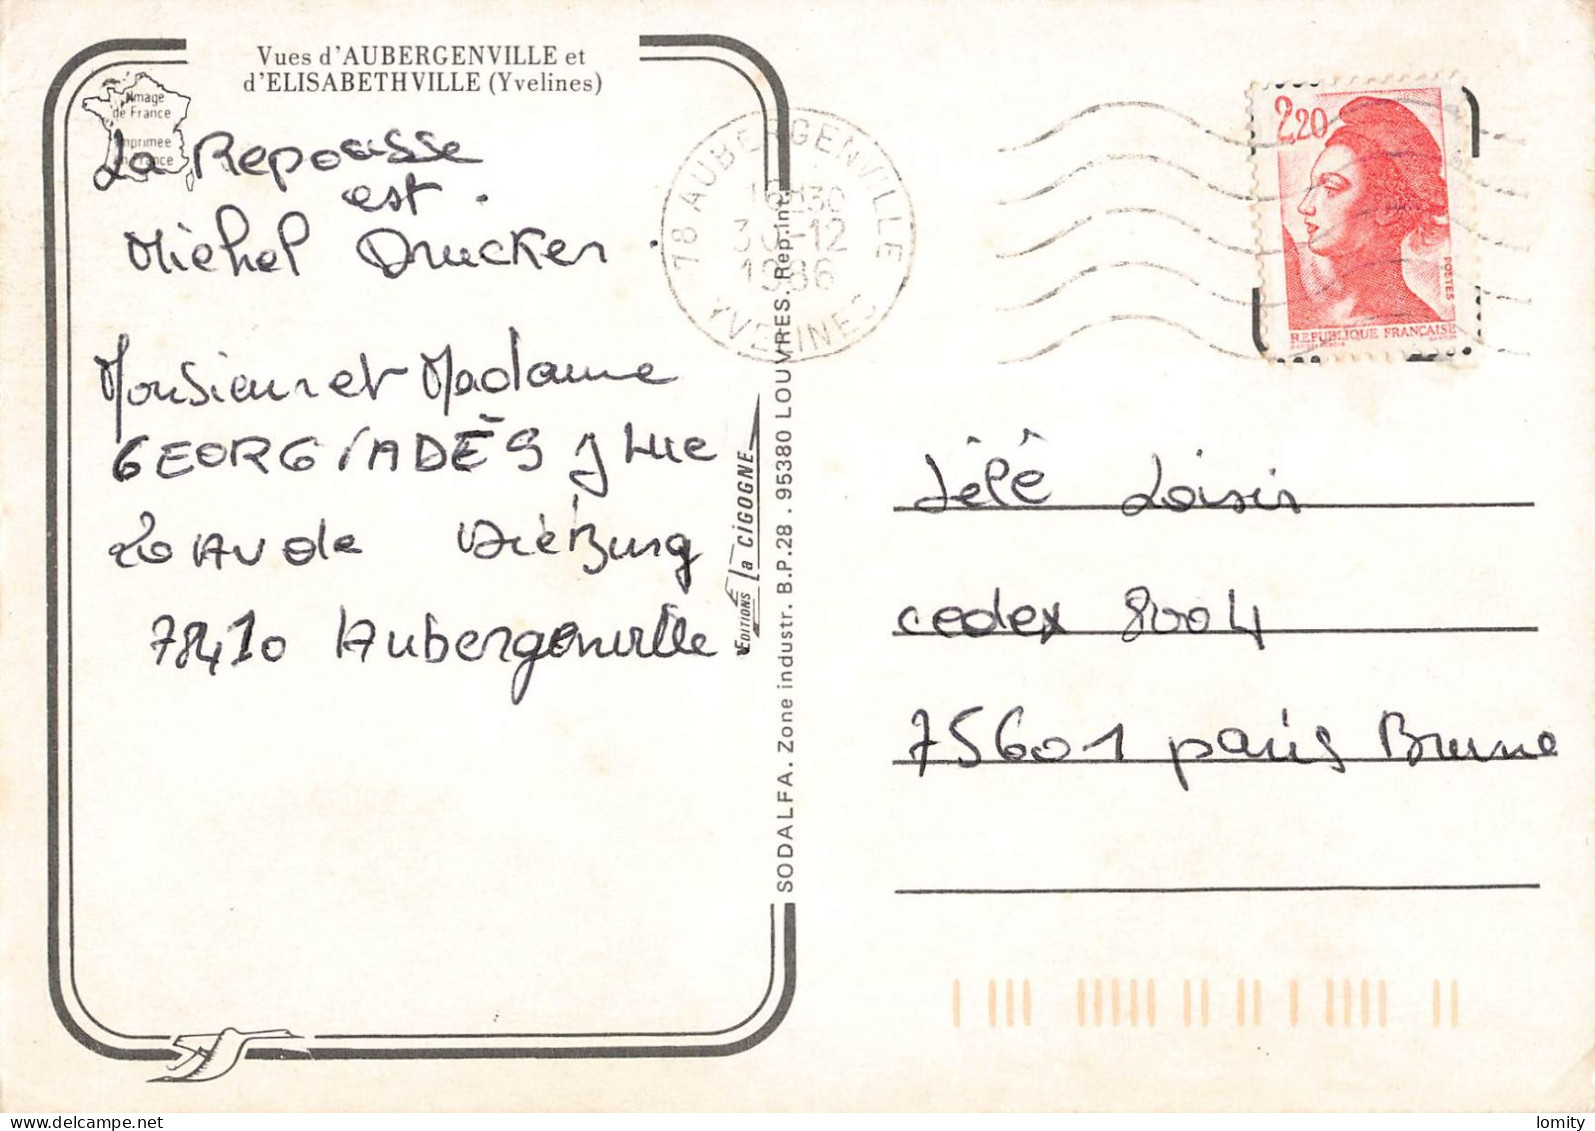 Vues d'AUBERGENVILLE et
d'ELISABETHVILLE (Yvelines)
Image
de France
Imprimée
en France
La Repousse
est.
Michel Drucker.
Monsieur et Madame
GEORGIADÈS J Luc
20 AV de Dieburg
78410 Aubergenville
EDITIONS La CIGOGNE
SODALFA. Zone industr. B.P.28 . 95380 LOUVRES. Rep.int.
78 AUBERGENVILLE
30-12
1986
YVELINES
2,20
POSTES
REPUBLIQUE FRANÇAISE
Télé Loisir
cedex 8004
75601 paris Brune
lomity